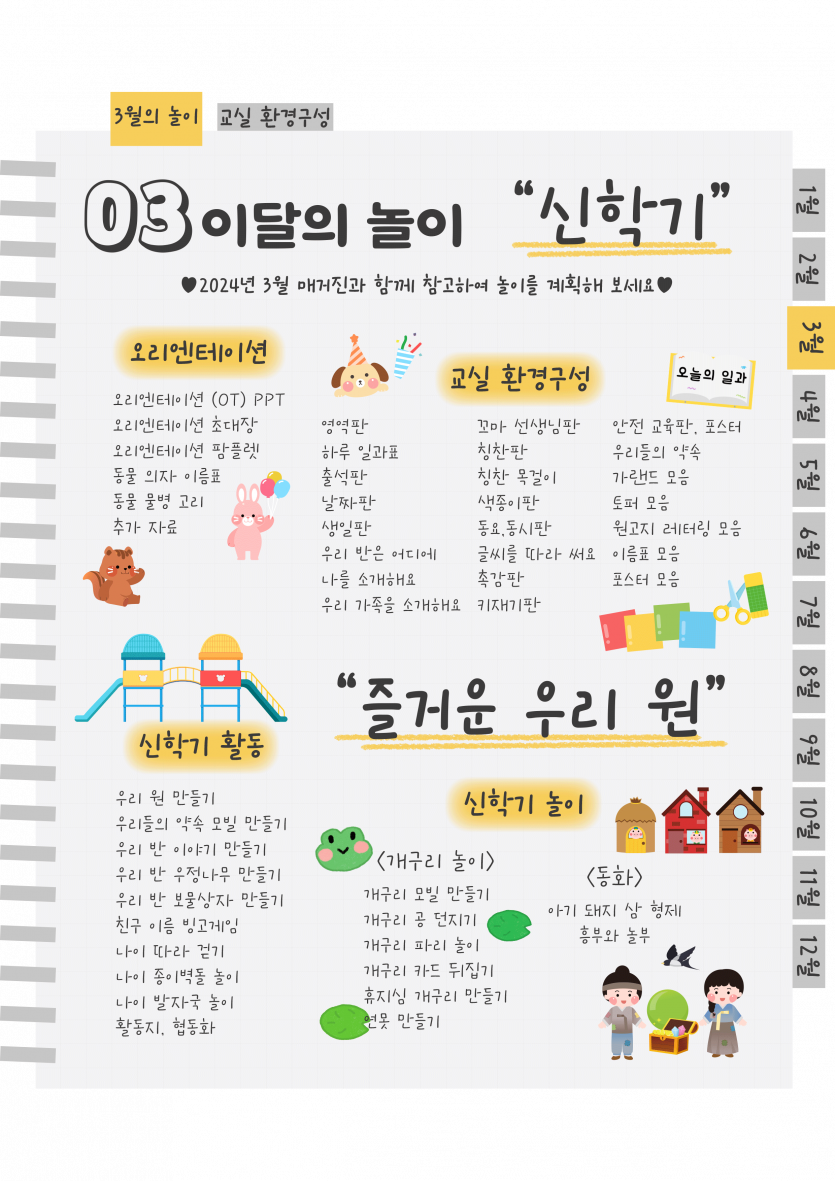 3월의 놀이
교실 환경구성
03 이달의 놀이 “신학기”
♥2024년 3월 매거진과 함께 참고하여 놀이를 계획해 보세요♥
오리엔테이션
오리엔테이션 (OT) PPT
오리엔테이션 초대장
오리엔테이션 팜플렛
동물 의자 이름표
동물 물병 고리
추가 자료
교실 환경구성
오늘의 일과
영역판
하루 일과표
출석판
날짜판
생일판
우리 반은 어디에
나를 소개해요
우리 가족을 소개해요
꼬마 선생님판
칭찬판
칭찬 목걸이
색종이판
동요,동시판
글씨를 따라 써요
촉감판
키재기판
안전 교육판, 포스터
우리들의 약속
가랜드 모음
토퍼 모음
원고지 레터링 모음
이름표 모음
포스터 모음
“즐거운 우리 원”
신학기 활동
우리 원 만들기
우리들의 약속 모빌 만들기
우리 반 이야기 만들기
우리 반 우정나무 만들기
우리 반 보물상자 만들기
친구 이름 빙고게임
나이 따라 걷기
나이 종이벽돌 놀이
나이 발자국 놀이
활동지, 협동화
신학기 놀이
<개구리 놀이>
개구리 모빌 만들기
개구리 공 던지기
개구리 파리 놀이
개구리 카드 뒤집기
휴지심 개구리 만들기
연못 만들기
<동화>
아기 돼지 삼 형제
흥부와 놀부
1월
2월
3월
4월
5월
6월
7월
8월
9월
10월
11월
12월